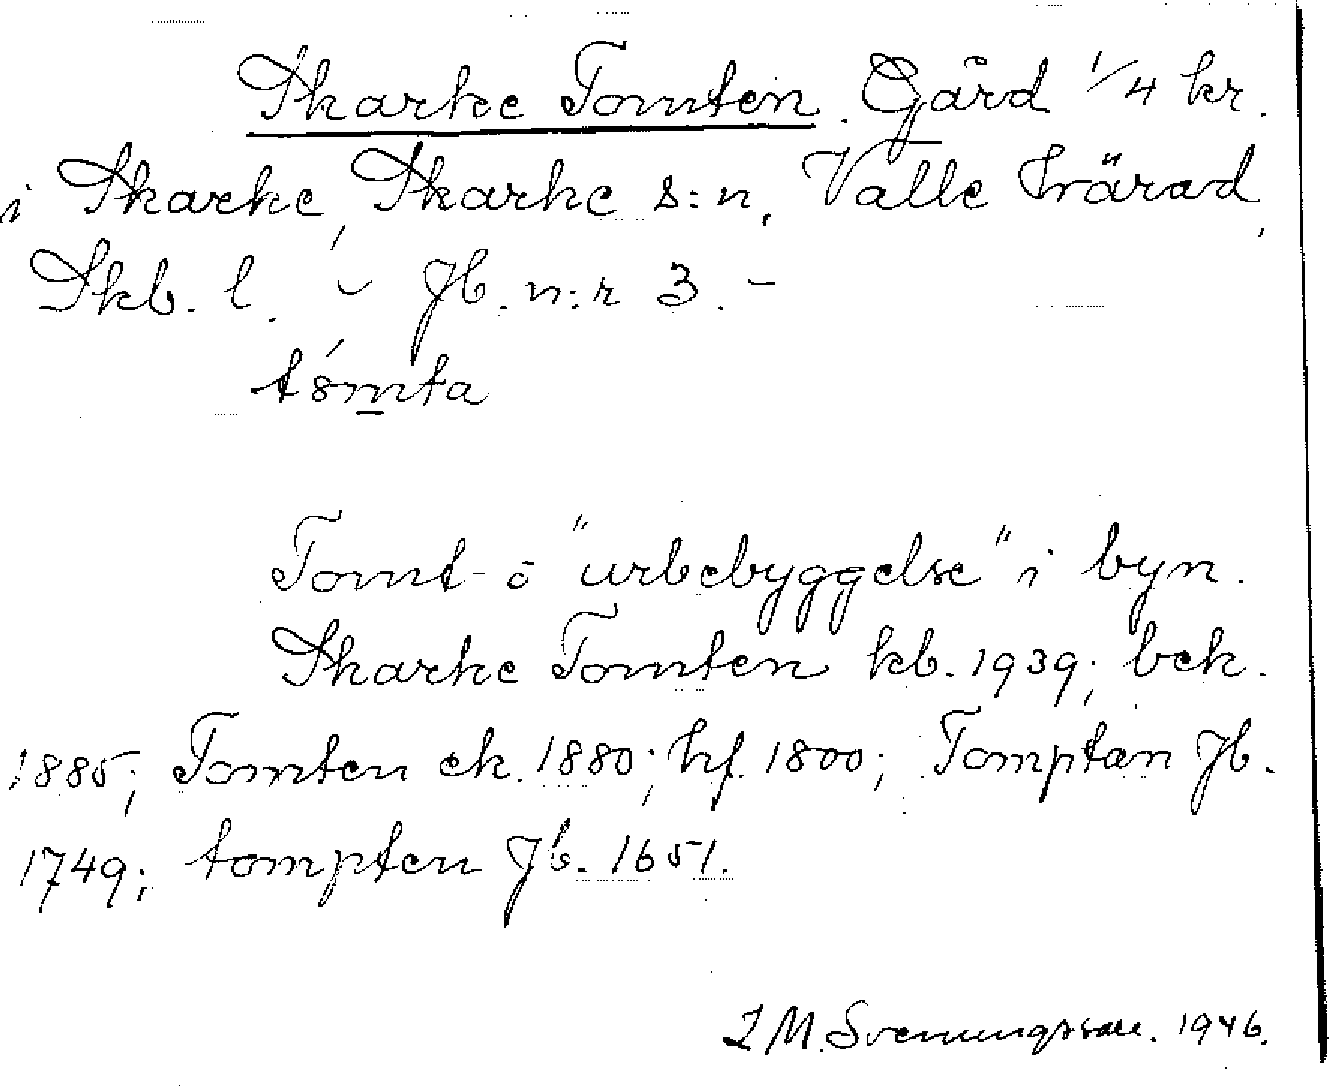 Skarke Tomten. Gård 1/4 kr.
i Skarke, Skarke s:n, Valle härad,
Skb. l. - Jb. n:r 3. -
tómta
Tomt- = "urbebyggelse" i byn.
Skarke Tomten kb. 1939; bek.
1885; Tomten ek. 1880; hf. 1800; Tomptan Jb.
1749; tompten Jb. 1651.
Svenungsson. 1946.